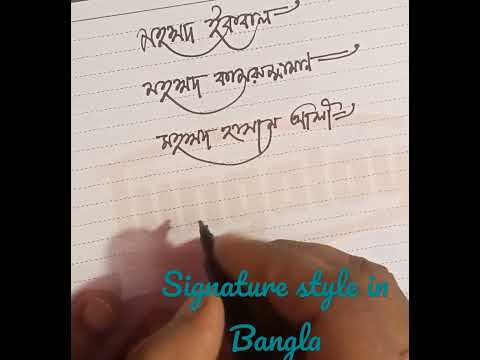 মহম্মদ ইকবাল
মহম্মদ কামরুজ্জামান
মহম্মদ হাসান আলী
Signature style in
Bangla